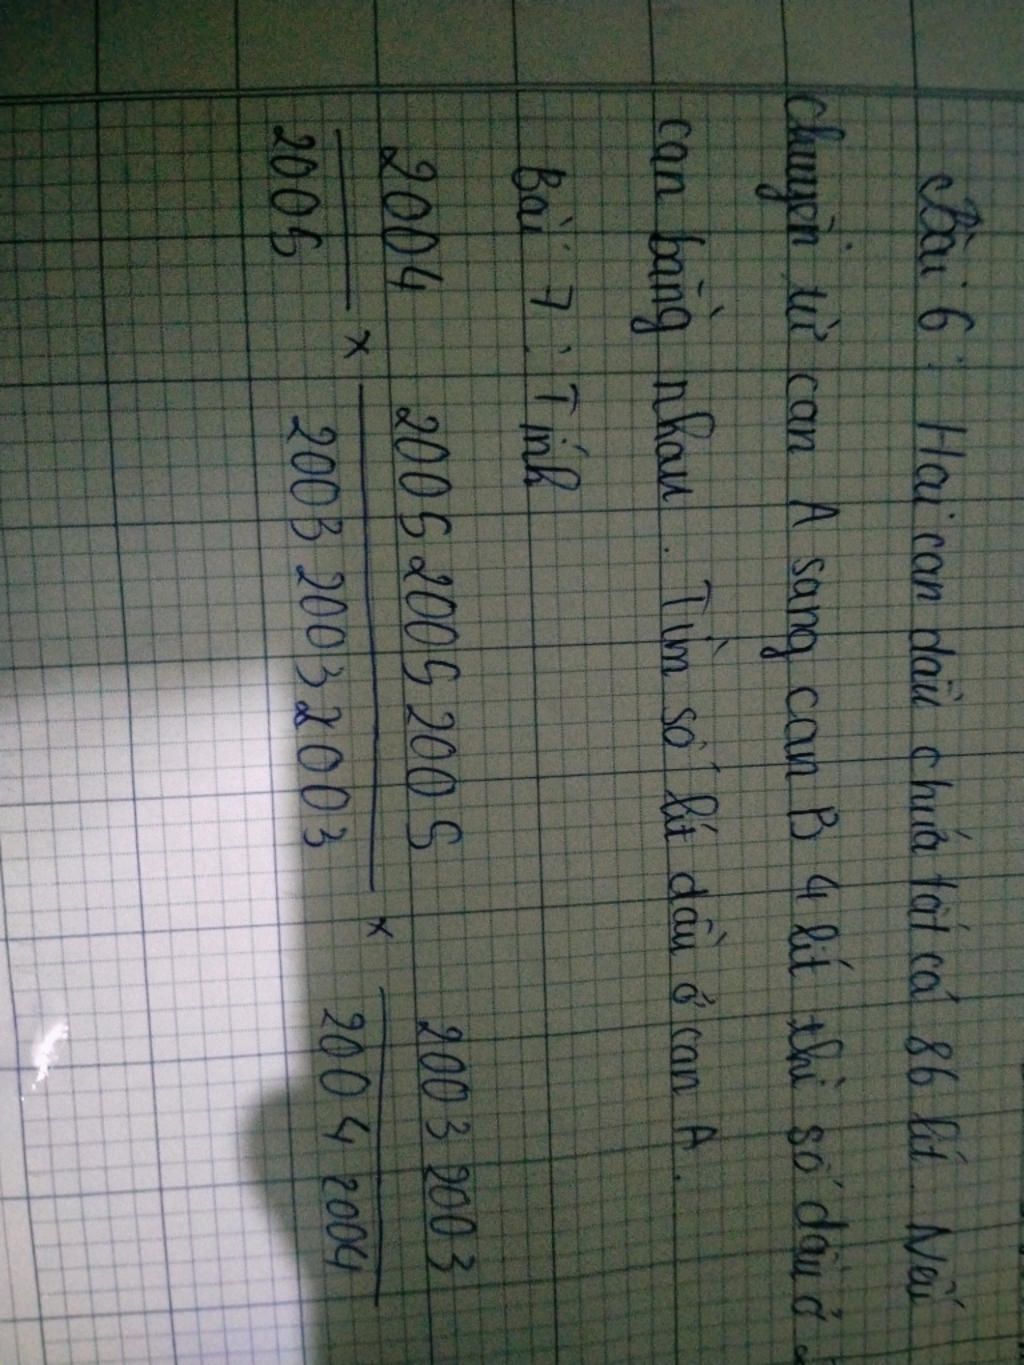 Bài 6 : Hai can dầu chứa tất cả 86 lít. Nếu
chuyển từ can A sang can B 4 lít thì số dầu ở
can bằng nhau. Tìm số lít dầu ở can A.
Bài 7 : Tính
2004 200520052005 20032003
x x
2005 200320032003 20042004